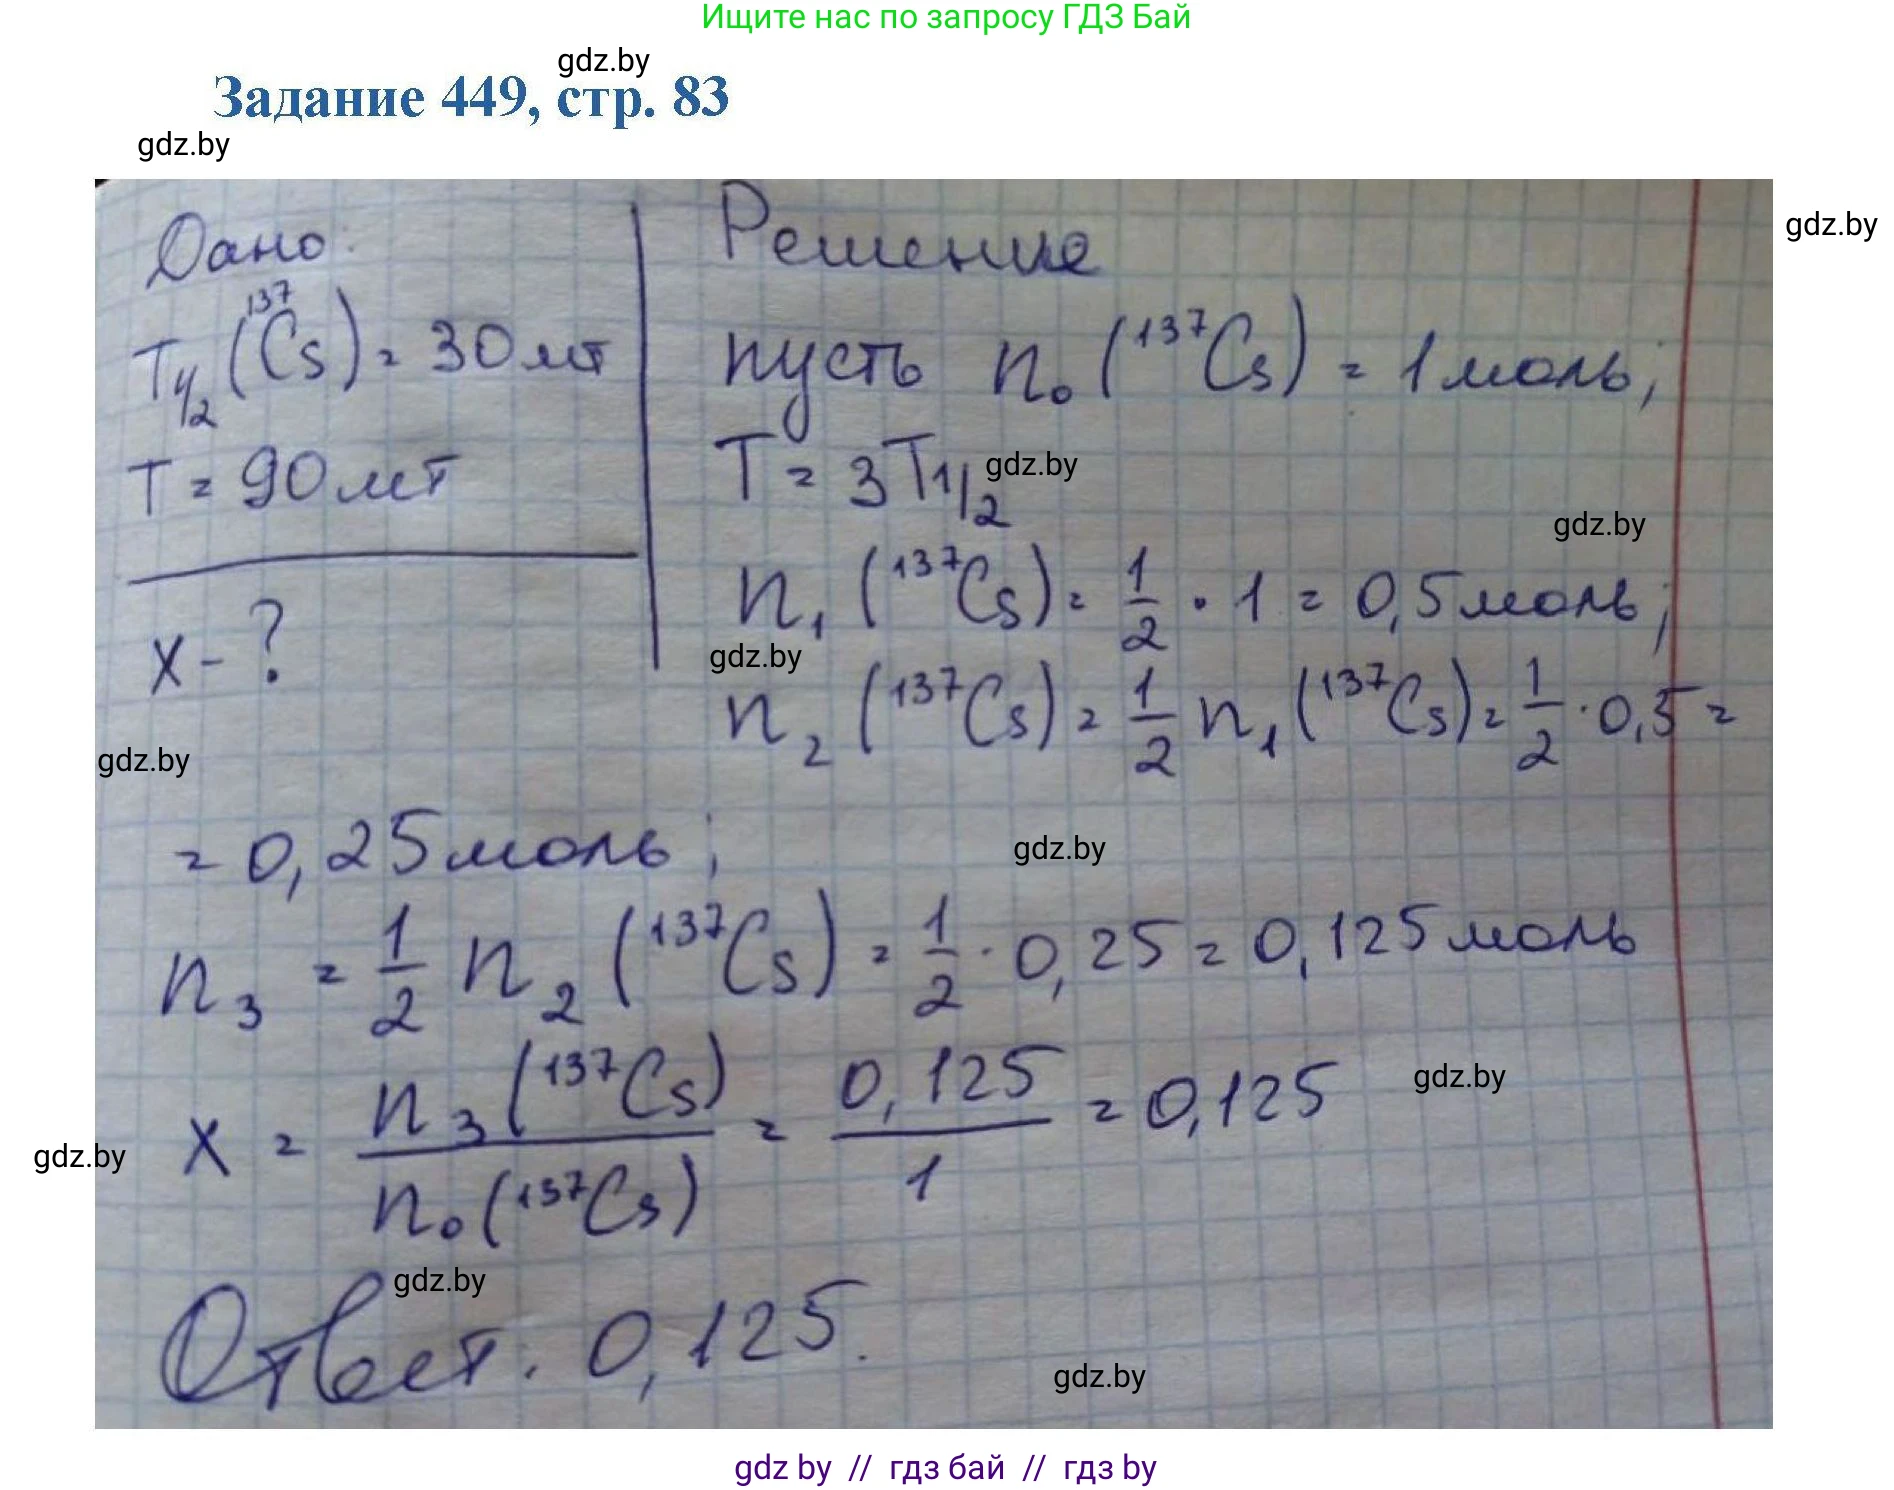 Ищите нас по запросу ГДЗ Бай
gdz.by
Задание 449, стр. 83
gdz.by
gdz.by
Дано:
T1/2 (¹³⁷Cs) = 30 лет
T = 90 лет
x - ?
Решение
пусть n₀ (¹³⁷Cs) = 1 моль;
T = 3T1/2
gdz.by
gdz.by
n₁ (¹³⁷Cs) = 1/2 · 1 = 0,5 моль;
gdz.by
n₂ (¹³⁷Cs) = 1/2 n₁ (¹³⁷Cs) = 1/2 · 0,5 =
gdz.by
= 0,25 моль;
gdz.by
n₃ = 1/2 n₂ (¹³⁷Cs) = 1/2 · 0,25 = 0,125 моль
x = n₃ (¹³⁷Cs) / n₀ (¹³⁷Cs) = 0,125 / 1 = 0,125
gdz.by
gdz.by
gdz.by
Ответ: 0,125.
gdz.by
gdz by // гдз бай // гдз by